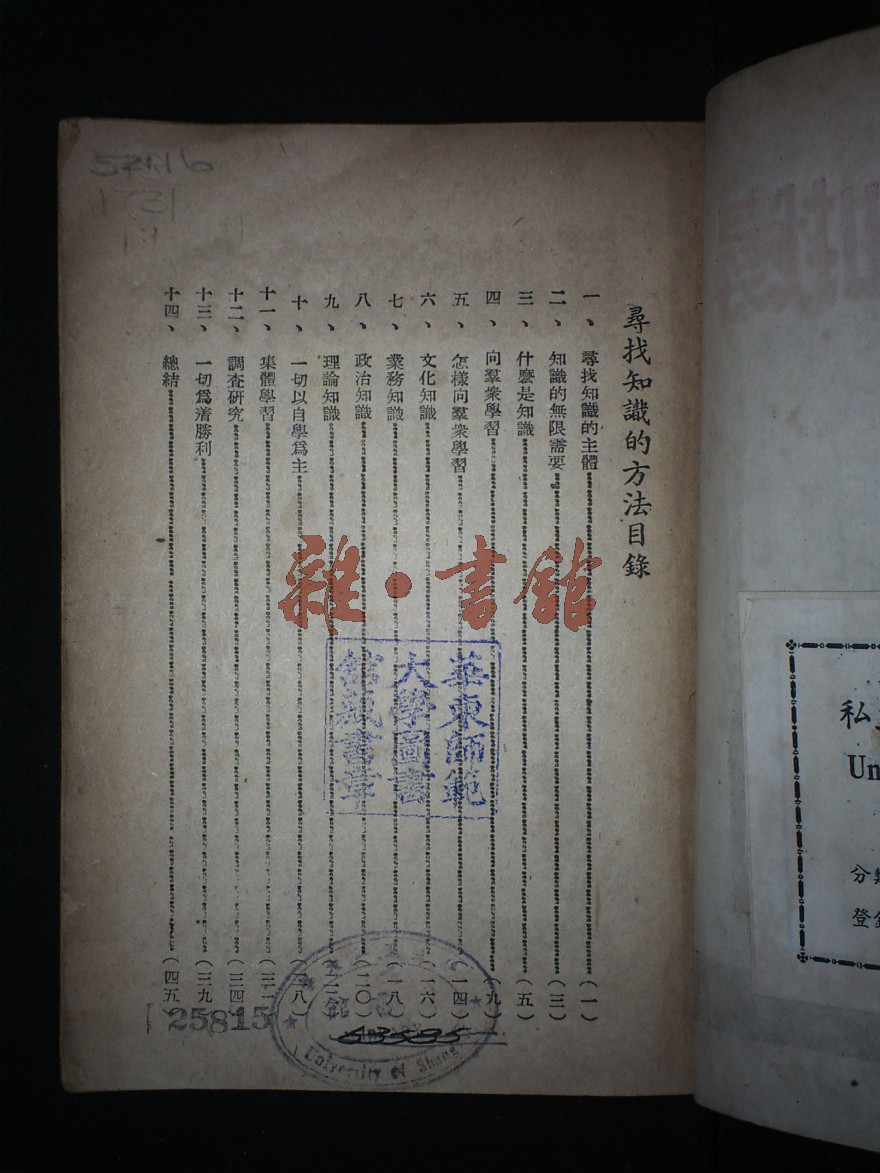 尋找知識的方法目錄
一、尋找知識的主體(一)
二、知識的無限需要(三)
三、什麼是知識(五)
四、向羣衆學習(九)
五、怎樣向羣衆學習(一四)
六、文化知識(一六)
七、業務知識(一八)
八、政治知識(二〇)
九、理論知識
十、一切以自學爲主
十一、集體學習
十二、調查研究(三四)
十三、一切爲着勝利(三九)
十四、總結(四五)
華東師範
大學圖書
館藏書章
雜·書館
25815
University of Shang
私
Un
分
登